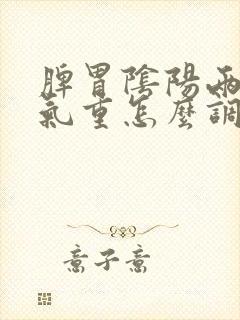 脾胃陰陽兩
氣重怎麼調
意子意